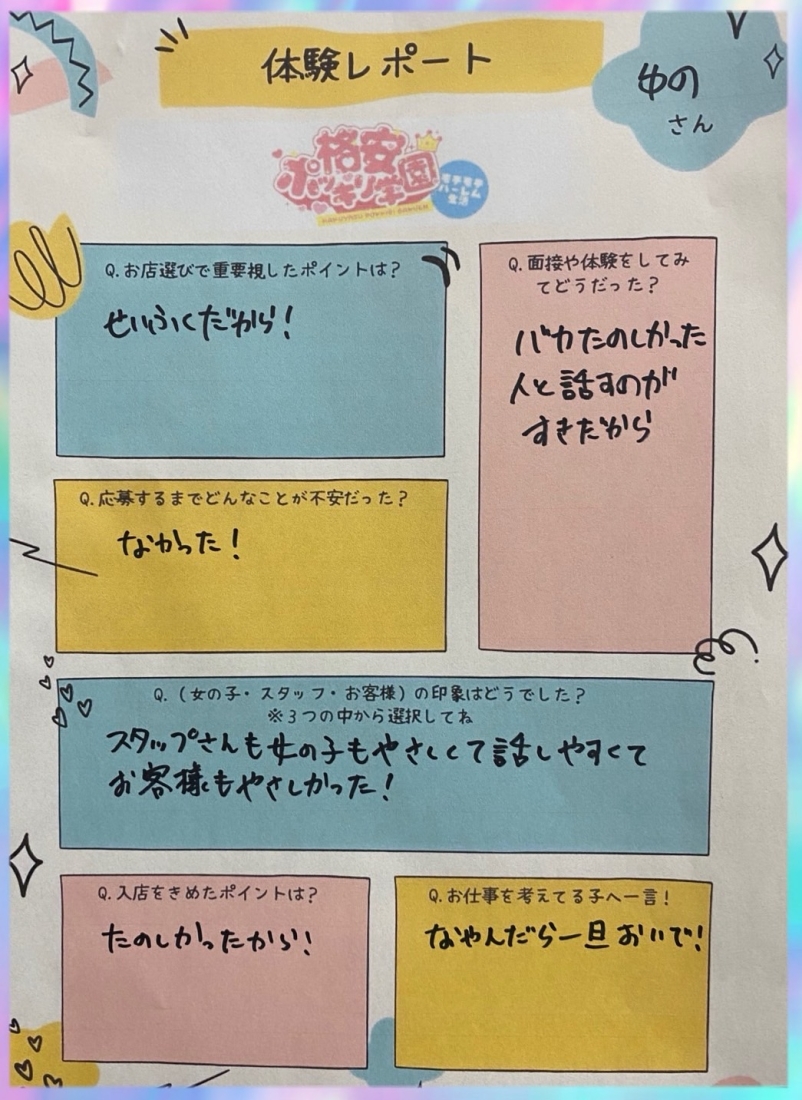 体験レポート
ゆの
さん
格安
ポッキリ学園
モテモテ
ハーレム
生活
Q.お店選びで重要視したポイントは？
せいふくだから！
Q.面接や体験をしてみ
てどうだった？
バカたのしかった
人と話すのが
すきだから
Q.応募するまでどんなことが不安だった？
なかった！
Q.（女の子・スタッフ・お客様）の印象はどうでした？
※３つの中から選択してね
スタッフさんも女の子もやさしくて話しやすくて
お客様もやさしかった！
Q.入店をきめたポイントは？
たのしかったから！
Q.お仕事を考えてる子へ一言！
なやんだら一旦おいで！